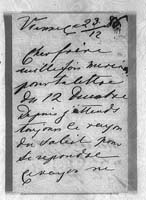 Vienne, 23 86
12
Cher frère
mille fois merci
pour ta lettre
du 12 Decembre
depuis j'attends
toujours le rayon
du soleil pour
te repondre
Ce rayon ne